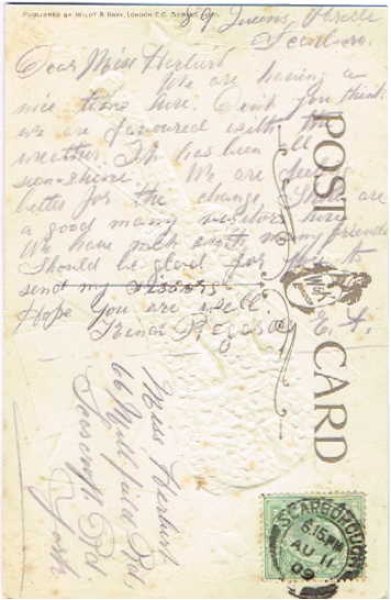 PUBLISHED BY WILDT & KRAY, LONDON E.C. SERIES
89, Queens Parade
Scarboro.
Dear Miss Herbert
We are having a
nice time here. Don't you think
we are favoured with the
weather. It has been all
sunshine. We are
better for the change. There are
a good many visitors here
We have met with many friends
Should be glad for you to
send my
Hope you are well.
POST CARD
W&K
LONDON
Miss Herbert
66 Millfield Rd,
Scarcroft Rd
York
SCARBOROUGH
6.15 PM
AU 11
09